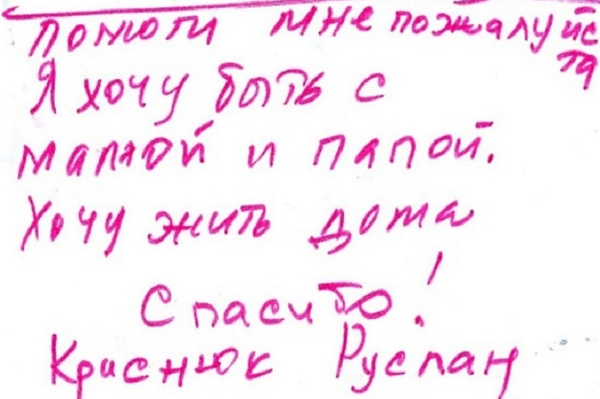 помоги мне пожалуйс
та
Я хочу быть с
мамой и папой.
Хочу жить дома
Спасибо!
Краснюк Руслан